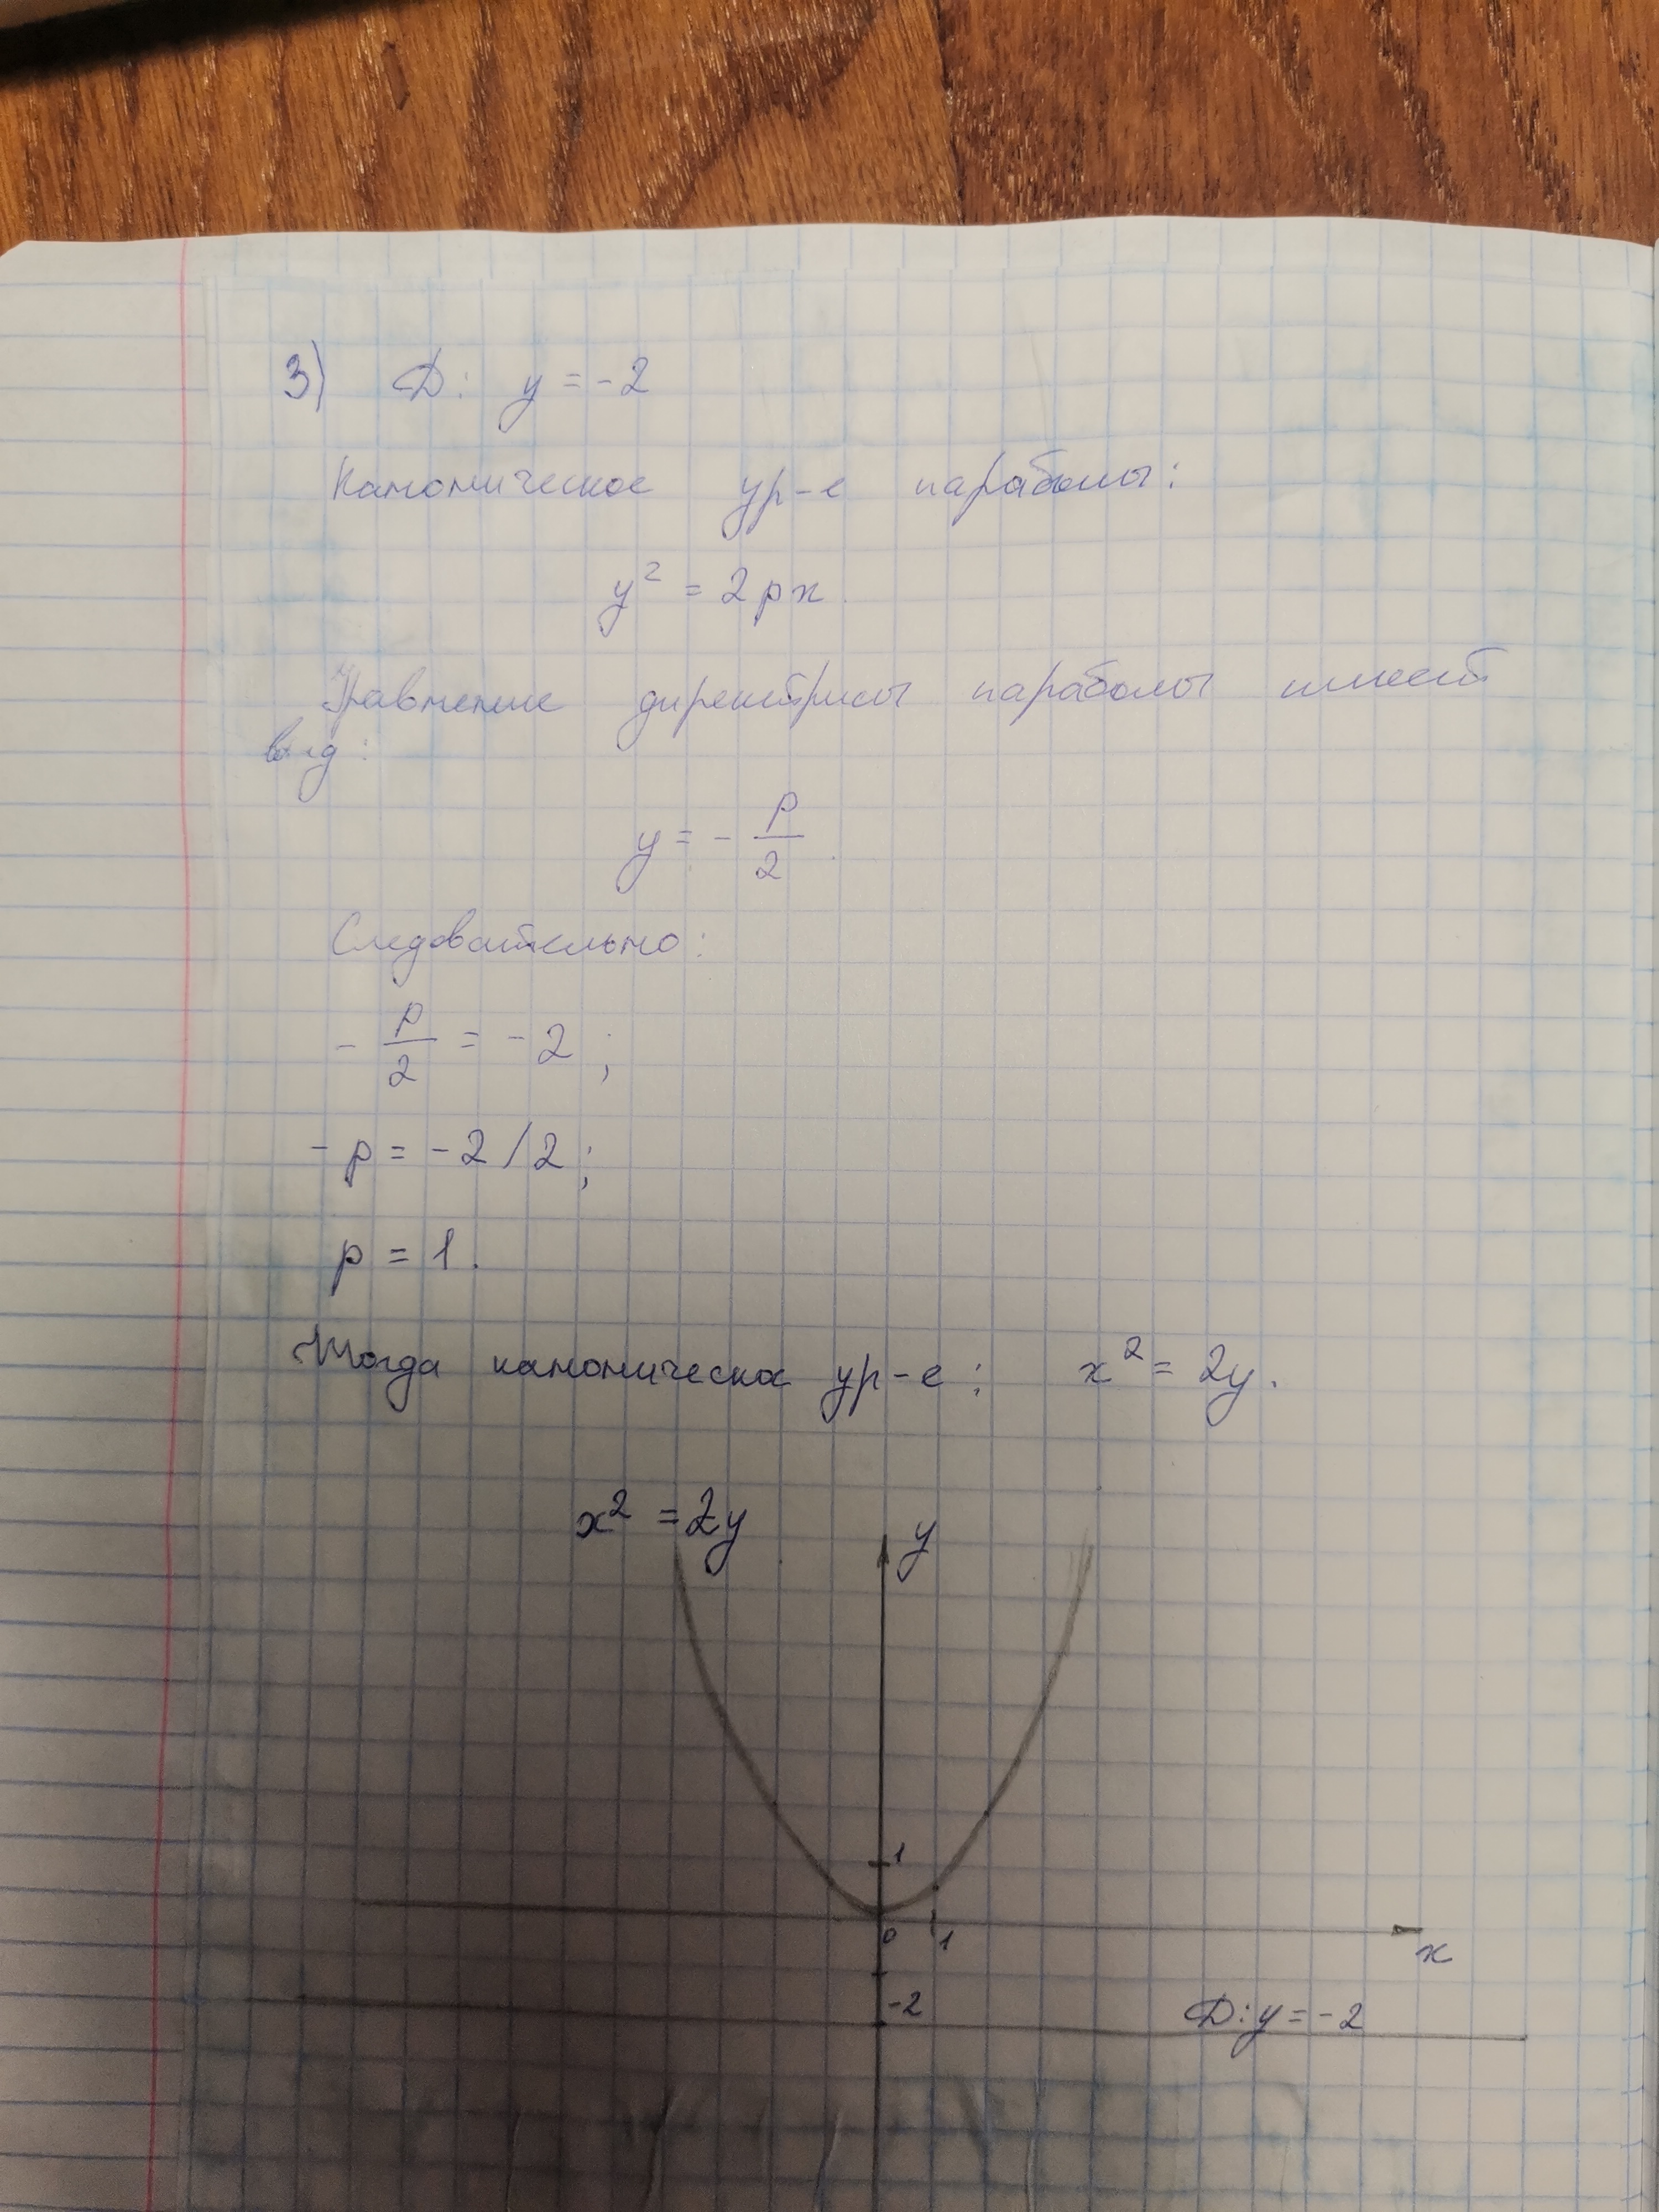 3) D: y = -2
Каноническое ур-е параболы:
y² = 2px.
Уравнение директрисы параболы имеет
вид:
y = - p/2
Следовательно:
- p/2 = -2;
-p = -2/2;
p = 1.
Тогда каноническое ур-е: x² = 2y.
x² = 2y
y
1
0 1
x
-2
D: y = -2